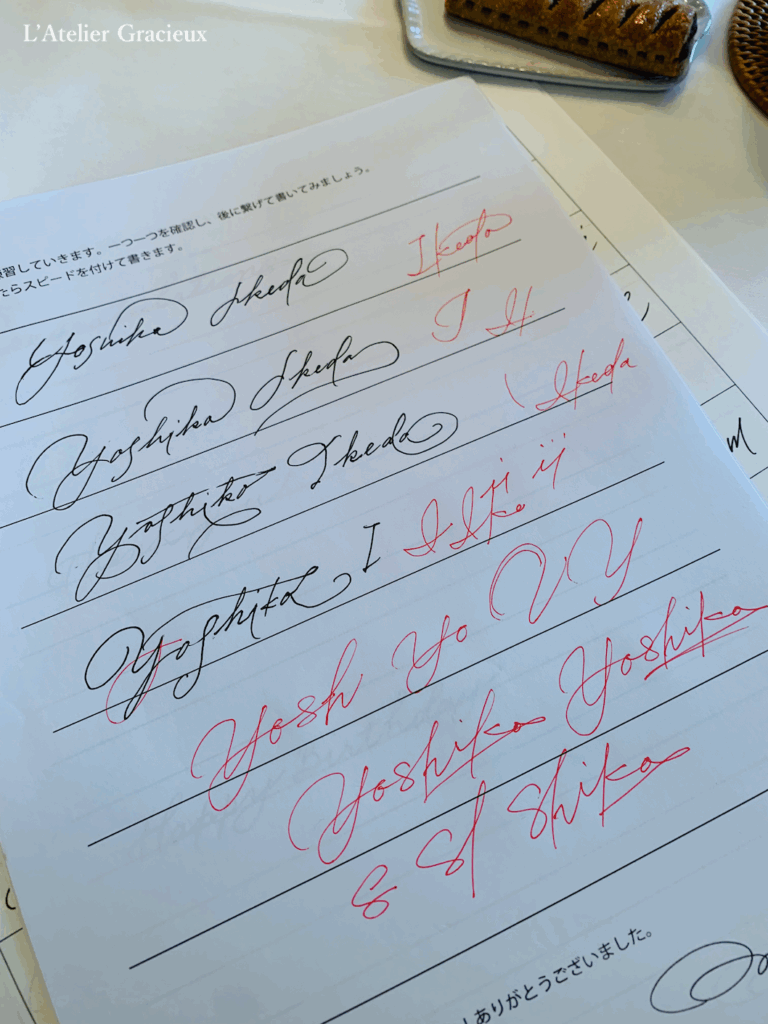 L'Atelier Gracieux
習していきます。一つ一つを確認し、後に繋げて書いてみましょう。
たらスピードを付けて書きます。
Yoshika Ikeda Ikeda
Yoshika Ikeda I H
Yoshika Ikeda \ Ikeda
Yoshika I I Ike ji ij
Yosh Yo V Y
Yoshika Yoshika
S Sh Shika
ありがとうございました。
m